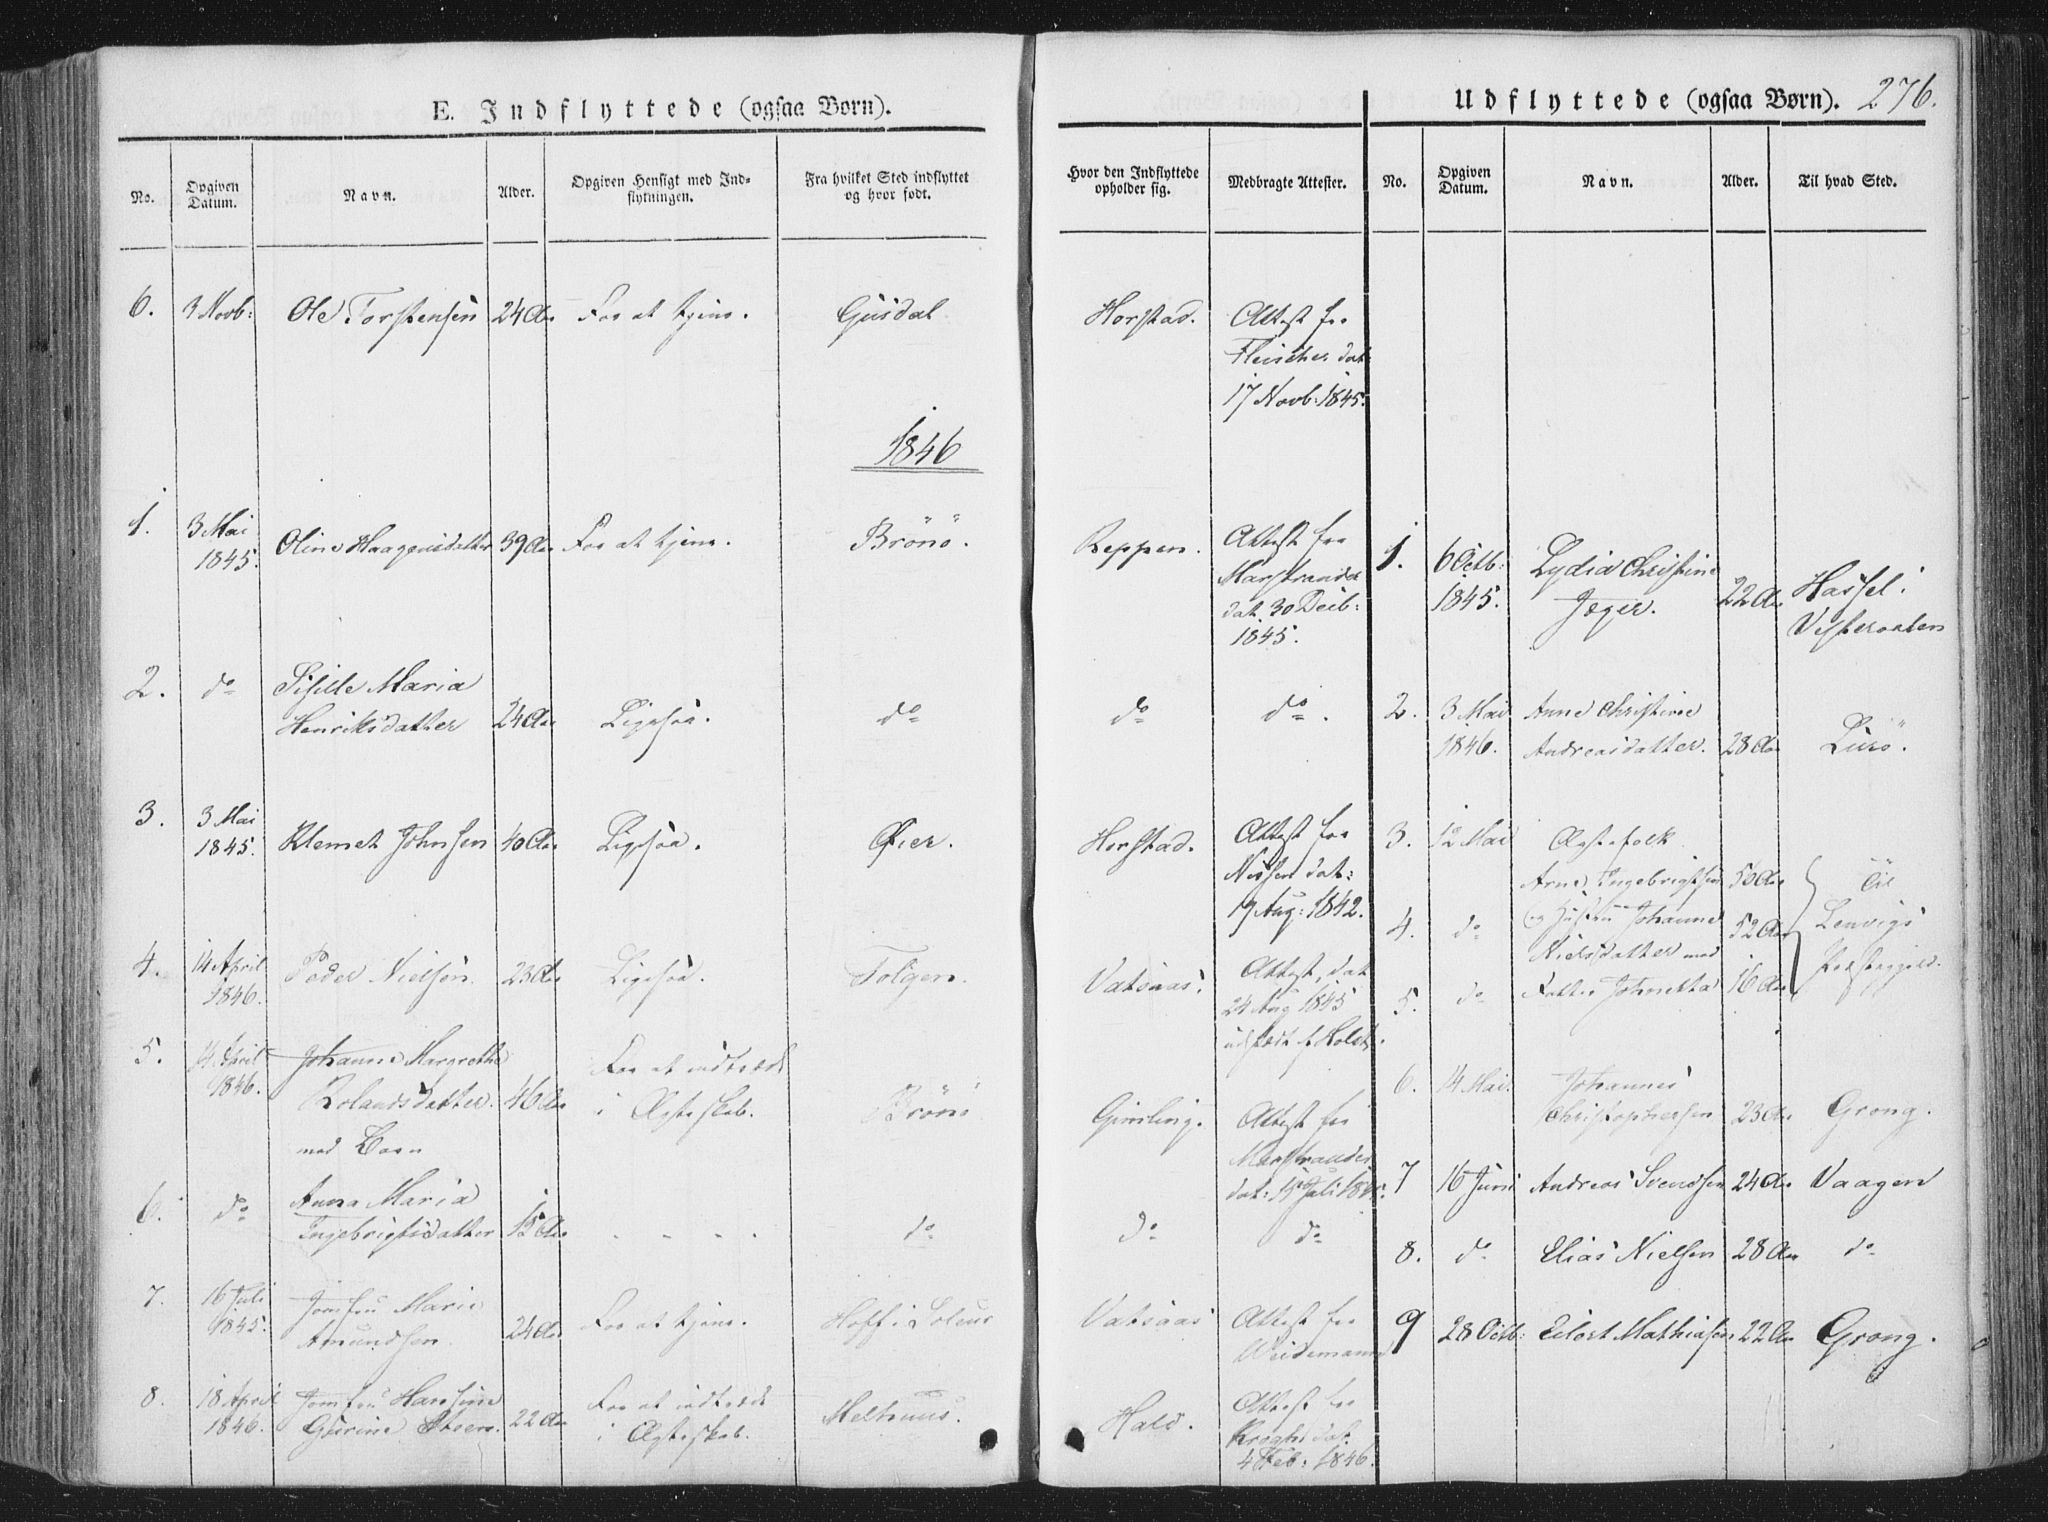 E. Indflyttede (ogsaa Børn).
No.
Opgiven Datum.
Navn.
Alder.
Opgiven Hensigt med Indflytningen.
Fra hvilket Sted indflyttet og hvor født.
6. 3 Novb: Ole Torstensen 24 Aar For at tjene. Gusdal
1846
1. 3 Mai Oline Haagensdatter 39 Aar For at tjene. Brönö.
1845.
2. do Maria
Henriksdatter 24 Aar Ligesaa. do
3. 3 Mai
1845. Klemet Johnsen 40 Aar Ligesaa. Øier.
4. 14 April Peder Nielsen 23 Aar Ligesaa. Tolgen.
1846.
5. 14 April Johanna Margrethe For at indtræde
1846. Rolandsdatter. 46 Aar i Ægteskab. Brönö
med Barn
6. do Anna Maria
Ingebrigtsdatter 15 Aar do
7. 16 Juli Jomfru Marie
1845. Amundsen. 24 Aar For at tjene. Hoff i Soleur
8. 18 April Jomfru Hansine For at indtræde
1846. Gurine Steen. 22 Aar i Ægteskab. Melhuus.
Udflyttede (ogsaa Børn). 276.
Hvor den Indflyttede opholder sig.
Medbragte Attester.
No.
Opgiven Datum.
Navn.
Alder.
Til hvad Sted.
Horstad. Attest fra
Fleischer dat:
17 Novb: 1845.
Reppen. Attest fra
Marstrander
dat. 30 Decb:
1845.
do do.
Horstad. Attest fra
Nissen dat:
Aug: 1842.
Vatsaas. Attest, dat
24 Aug 1845
udstædt f Holst.
Gimling. Attest fra
Marstrander
dat: Juli
do do
Vatsaas Attest fra
Weidemann
Hald. Attest fra
Krogh dat
4 Feb: 1846.
1. 6 Octb: Lydia Christine
1845. Jæger. 22 Aar Hassel i
Vesteraalen
2. 3 Mai Anne Christine
1846. Andreasdatter. 28 Aar Lurö.
3. 12 Mai Ægtefolk
Arne Ingebrigtsen 50 Aar Til
4. do og Hustru Johanna 52 Aar Lenvigs
Nielsdatter med Præstegjeld.
5. do Datter Johnetta 16 Aar
6. 14 Mai. Johannes
Christophersen 23 Aar Grong.
7 16 Juni Andreas Svendsen 24 Aar Vaagen
8. do Elias Nielsen 28 Aar do
9 28 Octb: Eilert Mathiasen 22 Aar Grong.